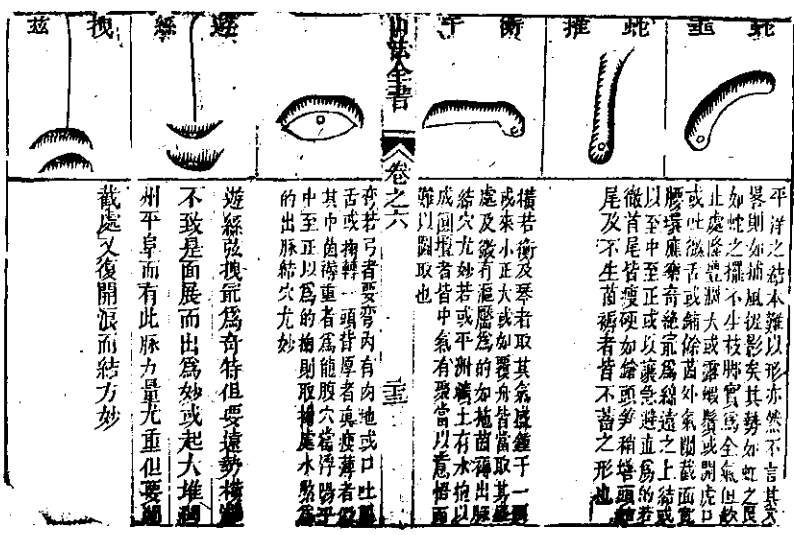 蛇
蛇推
平衡
山法全書
卷之六
遊絲
拽茲
平洋之結本難以形求然不言其大
畧則如捕風捉影矣其勢如蛇之
如蛇之擺不生枝脚實爲全氣但欽
止處隆豐濶大或露蝦鬚或開虎口
或吐微舌或鋪餘茵外氣關截面寬
腰環應樂奇絕最爲綿遠之上結或
以至中至正或以讓急避直爲的若
微首尾皆瘦硬如鎗頭笋稍
尾及不生茵褥者皆不蓄之形也
橫若衡及琴者取其氣盛鍾于一
或來小正大或如覆舟皆當取其
處及微有漚靨爲的如拖茵褥出脉
結穴尤妙若或平洲溝土有水抱以
成圓者皆中氣有聚當以意悟而
難以圖取也
弯若弓者要弯內有肉地或口吐
舌或拗轉一頭皆厚者
其中茵褥重者爲龍腹穴當浮陽乎
中至正以爲的拗則取拗處水聚爲
的出脉結穴尤妙
遊絲弦拽最爲奇特但要遠勢橫
不致是面展而出爲妙或起大堆
州平阜而有此脉力量尤重但要
截處又復開浪而結方妙